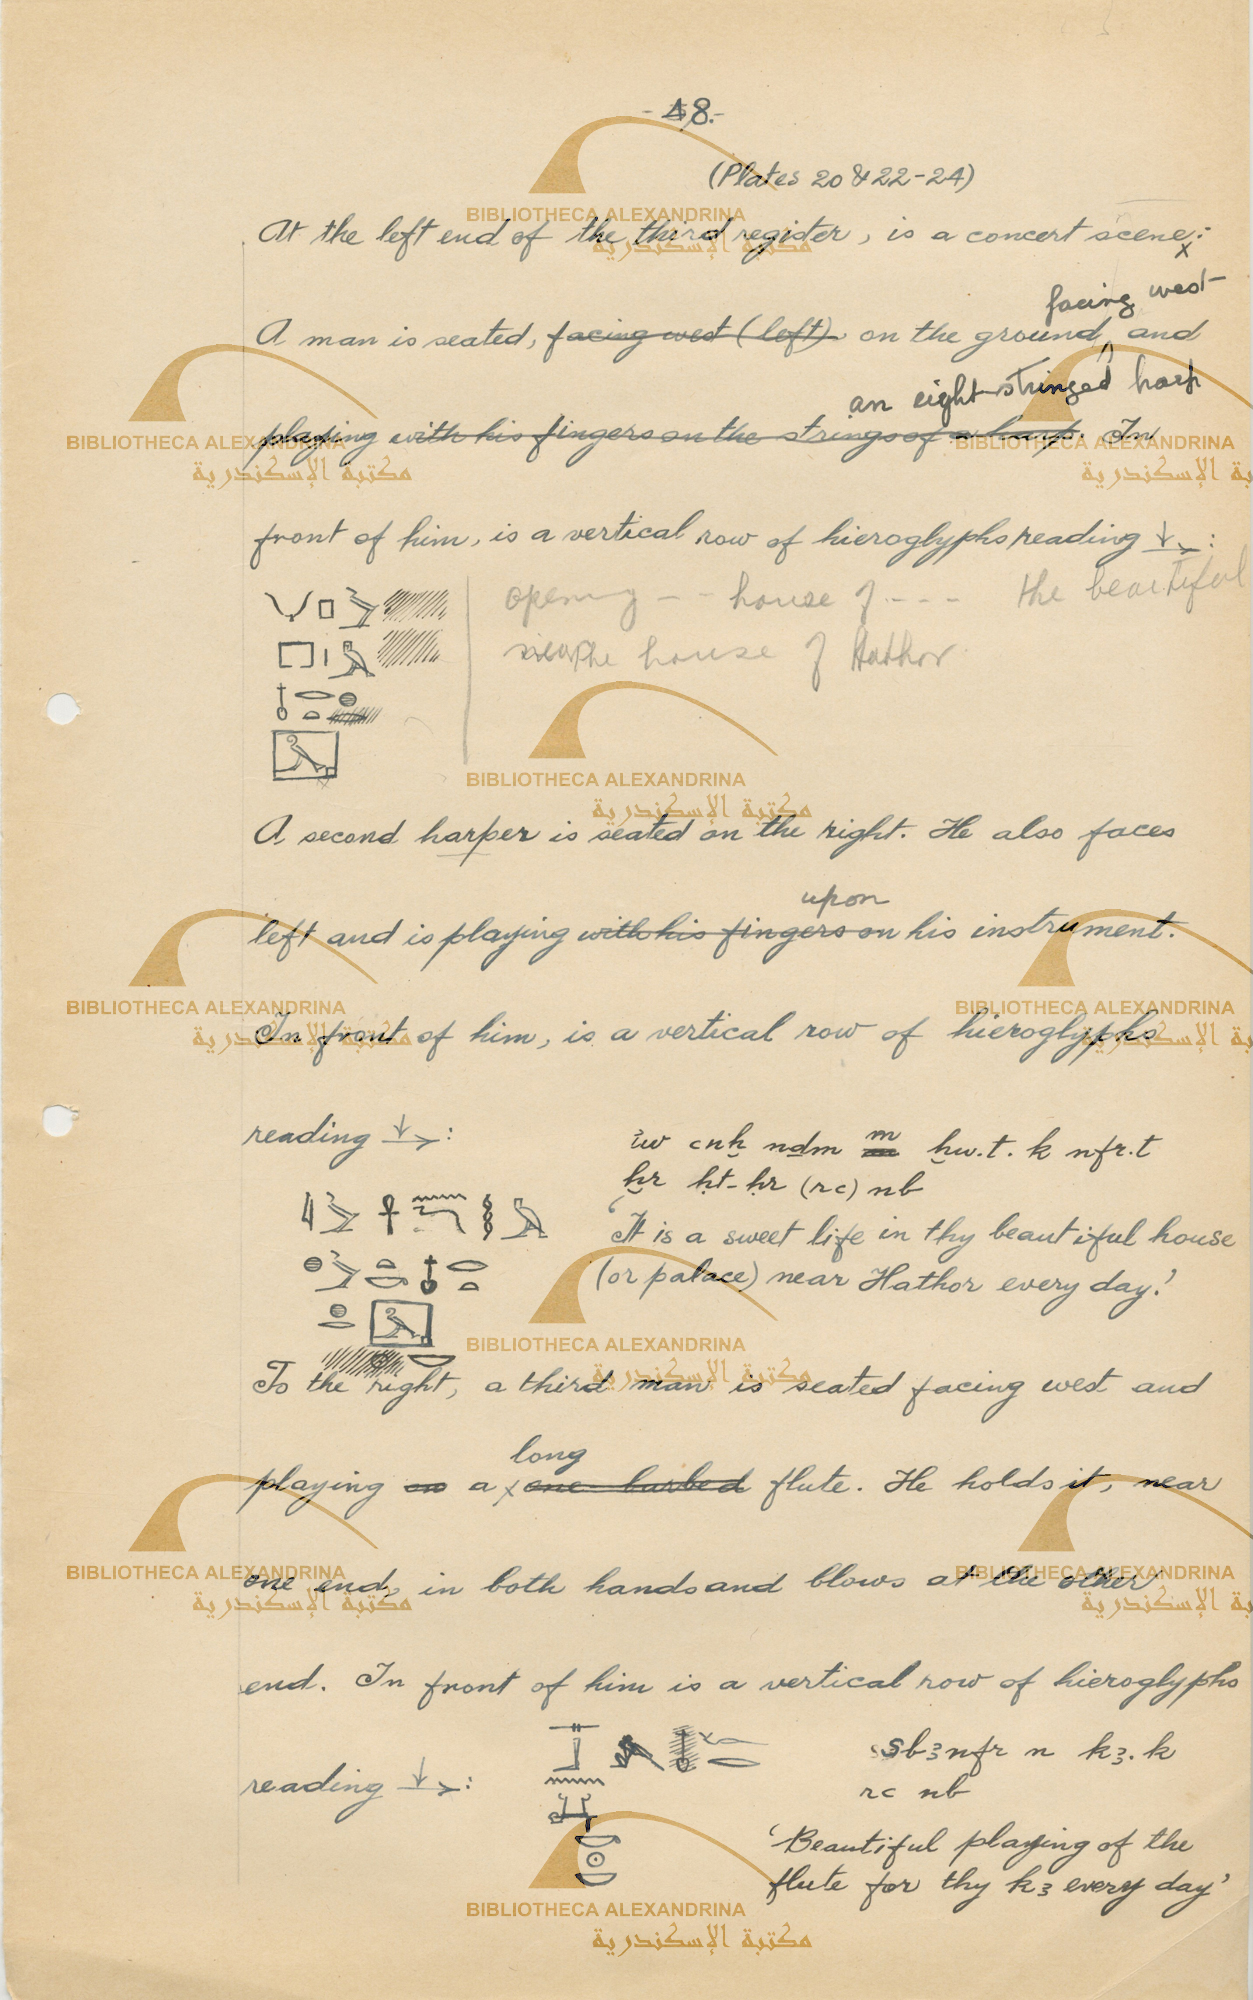 - 48.-
(Plates 20 & 22-24)
At the left end of the third register, is a concert scene:
x
facing west
A man is seated, facing west (left) on the ground, and
an eight-stringed harp
playing with his fingers on the strings of a harp. In
front of him, is a vertical row of hieroglyphs reading ↓→:
opening -- house of --- the beautiful
the house of Hathor
A second harper is seated on the right. He also faces
upon
left and is playing with his fingers on his instrument.
In front of him, is a vertical row of hieroglyphs
reading ↓→:
m
ꜣw cnḫ nḏm m ḥw.t.k nfr.t
ḫr ḥt-ḥr (rc) nb
'It is a sweet life in thy beautiful house
(or palace) near Hathor every day.'
To the right, a third man is seated facing west and
long
playing on a x one barbed flute. He holds it, near
one end, in both hands and blows at the other
end. In front of him is a vertical row of hieroglyphs
sbꜣ nfr n kꜣ.k
reading ↓→:
rc nb
'Beautiful playing of the
flute for thy kꜣ every day'
BIBLIOTHECA ALEXANDRINA
مكتبة الإسكندرية